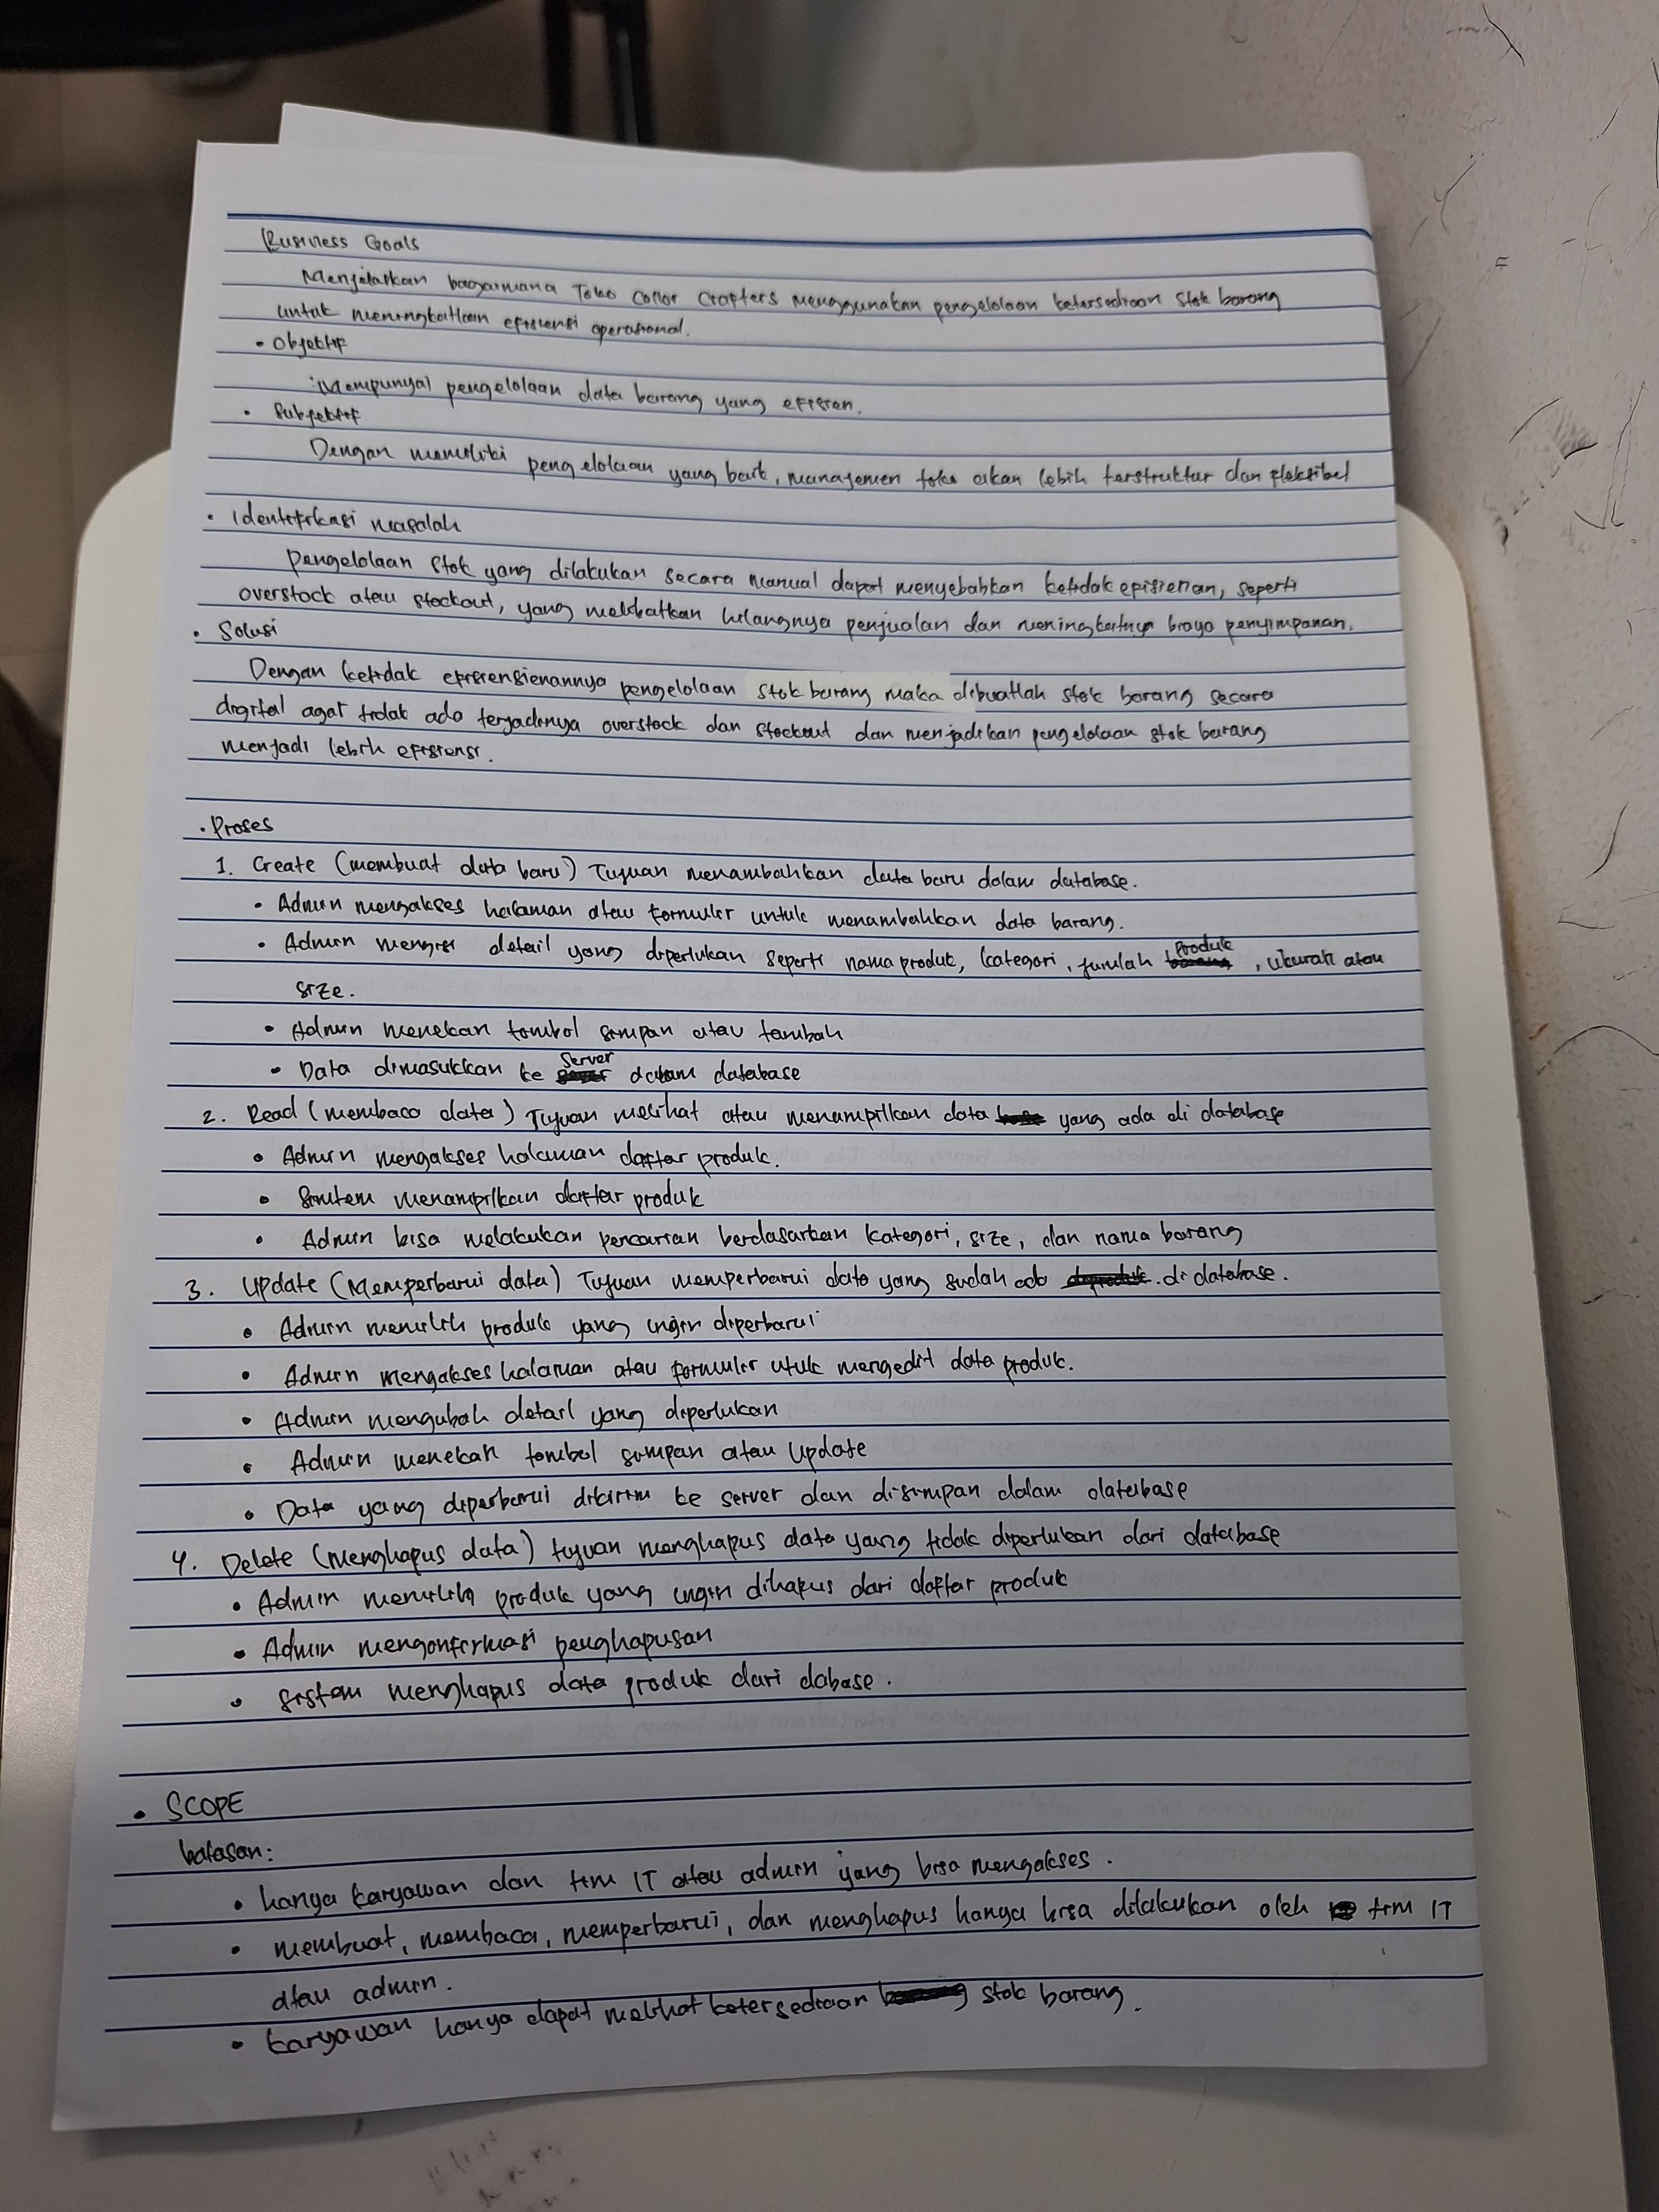 Business Goals
Menjelaskan bagaimana Toko Collor Crafters menggunakan pengelolaan ketersediaan stok barang
untuk meningkatkan efisiensi operasional.
• Objektif
Mempunyai pengelolaan data barang yang efisien.
• Subjektif
Dengan memiliki pengelolaan yang baik, manajemen toko akan lebih terstruktur dan fleksibel
• Identifikasi masalah
Pengelolaan stok yang dilakukan secara manual dapat menyebabkan ketidak efisienan, seperti
overstock atau stockout, yang melibatkan hilangnya penjualan dan meningkatnya biaya penyimpanan.
• Solusi
Dengan ketidak efisiensienannya pengelolaan stok barang maka dibuatlah stok barang secara
digital agar tidak ada terjadinya overstock dan stockout dan menjadikan pengelolaan stok barang
menjadi lebih efisiensi.
• Proses
1. Create (membuat data baru) Tujuan menambahkan data baru dalam database.
• Admin mengakses halaman atau formulir untuk menambahkan data barang.
• Admin mengisi detail yang diperlukan seperti nama produk, kategori, jumlah produk, ukuran atau
size.
• Admin menekan tombol simpan atau tambah
• Data dimasukkan ke server dalam database
2. Read (membaca data) Tujuan melihat atau menampilkan data yang ada di database
• Admin mengakses halaman daftar produk.
• Sisitem menampilkan daftar produk
• Admin bisa melakukan pencarian berdasarkan kategori, size, dan nama barang
3. Update (Memperbarui data) Tujuan memperbarui data yang sudah ada di database.
• Admin memilih produk yang ingin diperbarui
• Admin mengakses halaman atau formulir utuk mengedit data produk.
• Admin mengubah detail yang diperlukan
• Admin menekan tombol simpan atau Update
• Data yang diperbarui dikirim ke server dan disimpan dalam database
4. Delete (menghapus data) tujuan menghapus data yang tidak diperlukan dari database
• Admin memilih produk yang ingin dihapus dari daftar produk
• Admin mengonfirmasi penghapusan
• sistem menghapus data produk dari dabase.
• SCOPE
batasan:
• hanya karyawan dan tim IT atau admin yang bisa mengakses.
• membuat, membaca, memperbarui, dan menghapus hanya bisa dilakukan oleh tim IT
atau admin.
• karyawan hanya dapat melihat ketersediaan stok barang.